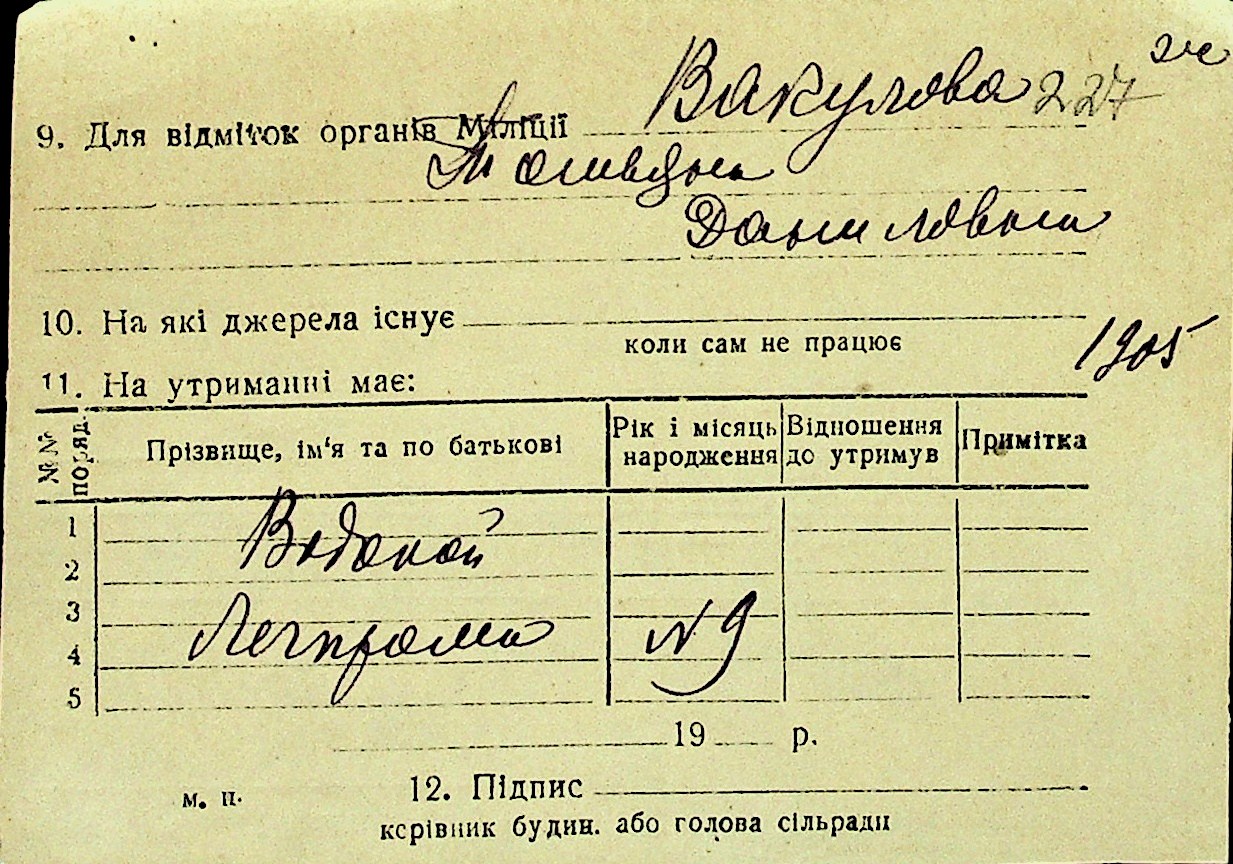 Вакулова 227
9. Для відміток органів Міліції
Даниловна
10. На які джерела існує
коли сам не працює
1905
11. На утриманні має:
№№ поряд. Прізвище, ім'я та по батькові Рік і місяць народження Відношення до утримув Примітка
1
Водокой
2
3
Легпрома № 9
4
5
19 р.
м. п. 12. Підпис
керівник будин. або голова сільради